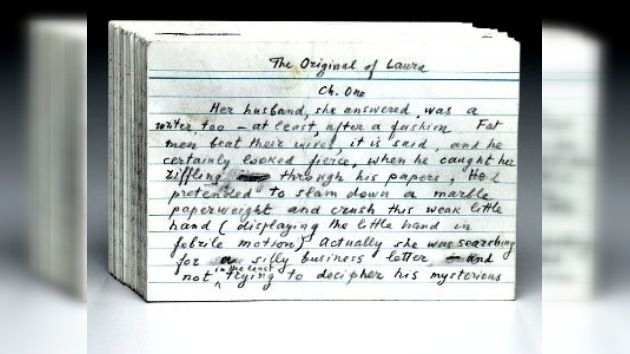 The Original of Laura
Ch. One
Her husband, she answered, was a
writer too – at least, after a fashion. Fat
men beat their wives, it is said, and he
certainly looked fierce, when he caught her
riffling through his papers. He
pretended to slam down a marble
paperweight and crush this weak little
hand (displaying the little hand in
febrile motion) Actually she was searching
for a silly business letter and
not in the least trying to decipher his mysterious